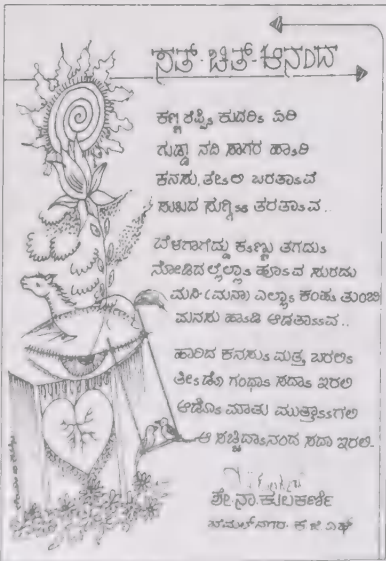 ಸತ್-ಚಿತ್-ಆನಂದ
ಕಣ್ಣ ರೆಪ್ಪಿs ಕುದರಿs ಏರಿ
ಗುಡ್ಡಾ ನದಿ ಸಾಗರ ಹಾsರಿ
ಕನಸು, ತೇsಲಿ ಬರತಾsವೆ
ಸುಖದ ಸುಗ್ಗಿss ತರತಾsವ..
ಬೆಳಗಾಗೆದ್ದು ಕsಣ್ಣು ತಗದುs
ನೋಡಿದಲ್ಲೆಲ್ಲಾs ಹೂsವ ಸುರದು
ಮನಿ-(ಮನಾ) ಎಲ್ಲಾs ಕಂಹs ತುಂಬಿ
ಮನಸು ಹಾsಡಿ ಆಡತಾssವ..
ಹಾರಿದ ಕನಸುs ಮತ್ತ ಬರಲಿs
ತೀsಡೊ ಗಂಧಾs ಸದಾs ಇರಲಿ
ಆಡೊs ಮಾತು ಮುತ್ತಾssಗಲಿ
ಆ ಸಚ್ಚಿದಾsನಂದ ಸದಾ ಇರಲಿ-
ಶೇ.ನಾ.ಕುಲಕರ್ಣಿ